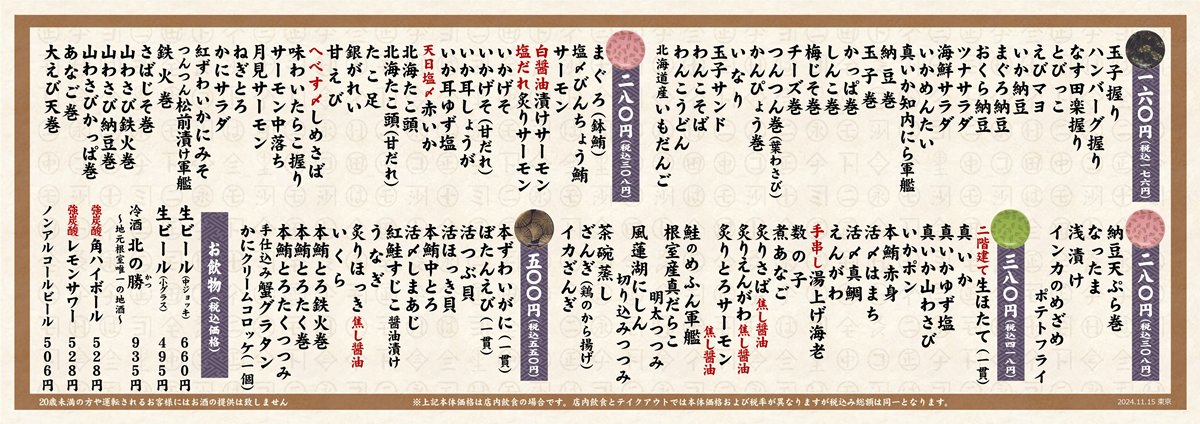 一六〇円(税込一七六円)
玉子握り
ハンバーグ握り
なす田楽握り
とびっこ
えびマヨ
いか納豆
まぐろ納豆
おくら納豆
ツナサラダ
海鮮サラダ
いかめんたい
真いか知内にら軍艦
納豆巻
玉子巻
かっぱ巻
しんこ巻
梅じそ巻
チーズ巻
つんつん巻(葉わさび)
かんぴょう巻
いなり
玉子サンド
わんこそば
わんこうどん
北海道産いももだんご
二八〇円(税込三〇八円)
まぐろ(鉢鮪)
塩〆びんちょう鮪
サーモン
白醤油漬けサーモン
塩だれ炙りサーモン
いかげそ
いかげそ(甘だれ)
いか耳しょうが
いか耳ゆず塩
天日塩〆赤いか
北海たこ頭
北海たこ頭(甘だれ)
たこ足
銀がれい
甘えび
へべす〆しめさば
味わいたらこ握り
サーモン中落ち
月見サーモン
ねぎとろ
かにサラダ
紅ずわいかにみそ
つんつん松前漬け軍艦
鉄火巻
さばじそ巻
山わさび鉄火巻
山わさび納豆巻
山わさびかっぱ巻
あなご巻
大えび天巻
二八〇円(税込三〇八円)
納豆天ぷら巻
なったま
浅漬け
インカのめざめ
ポテトフライ
三八〇円(税込四一八円)
二階建て生ほたて(一貫)
真いか
真いかゆず塩
真いか山わさび
いかポン
本鮪赤身
活〆はまち
活〆真鯛
えんがわ
手串し湯上げ海老
数の子
煮あなご
炙りさば焦し醤油
炙りえんがわ焦し醤油
炙りとろサーモン
焦し醤油
鮭のめふん軍艦
根室産真だらこ
明太つつみ
風蓮湖にしん
切り込みつつみ
茶碗蒸し
ざんぎ(鶏のから揚げ)
イカざんぎ
五〇〇円(税込五五〇円)
本ずわいがに(一貫)
ぼたんえび(一貫)
活つぶ貝
活ほっき貝
本鮪中とろ
活〆しまあじ
紅鮭すじこ醤油漬け
うなぎ
炙りほっき焦し醤油
いくら
本鮪とろ鉄火巻
本鮪とろたく巻
本鮪とろたくつつみ
手仕込み蟹グラタン
かにクリームコロッケ(一個)
お飲物(税込価格)
生ビール(中ジョッキ) 660円
生ビール(小グラス) 495円
冷酒 北の勝 かつ 935円
～地元根室唯一の地酒～
強炭酸 角ハイボール 528円
強炭酸 レモンサワー 528円
ノンアルコールビール 506円
20歳未満の方や運転されるお客様にはお酒の提供は致しません
※上記本体価格は店内飲食の場合です。店内飲食とテイクアウトでは本体価格および税率が異なりますが税込み総額は同一となります。
2024.11.15 東京